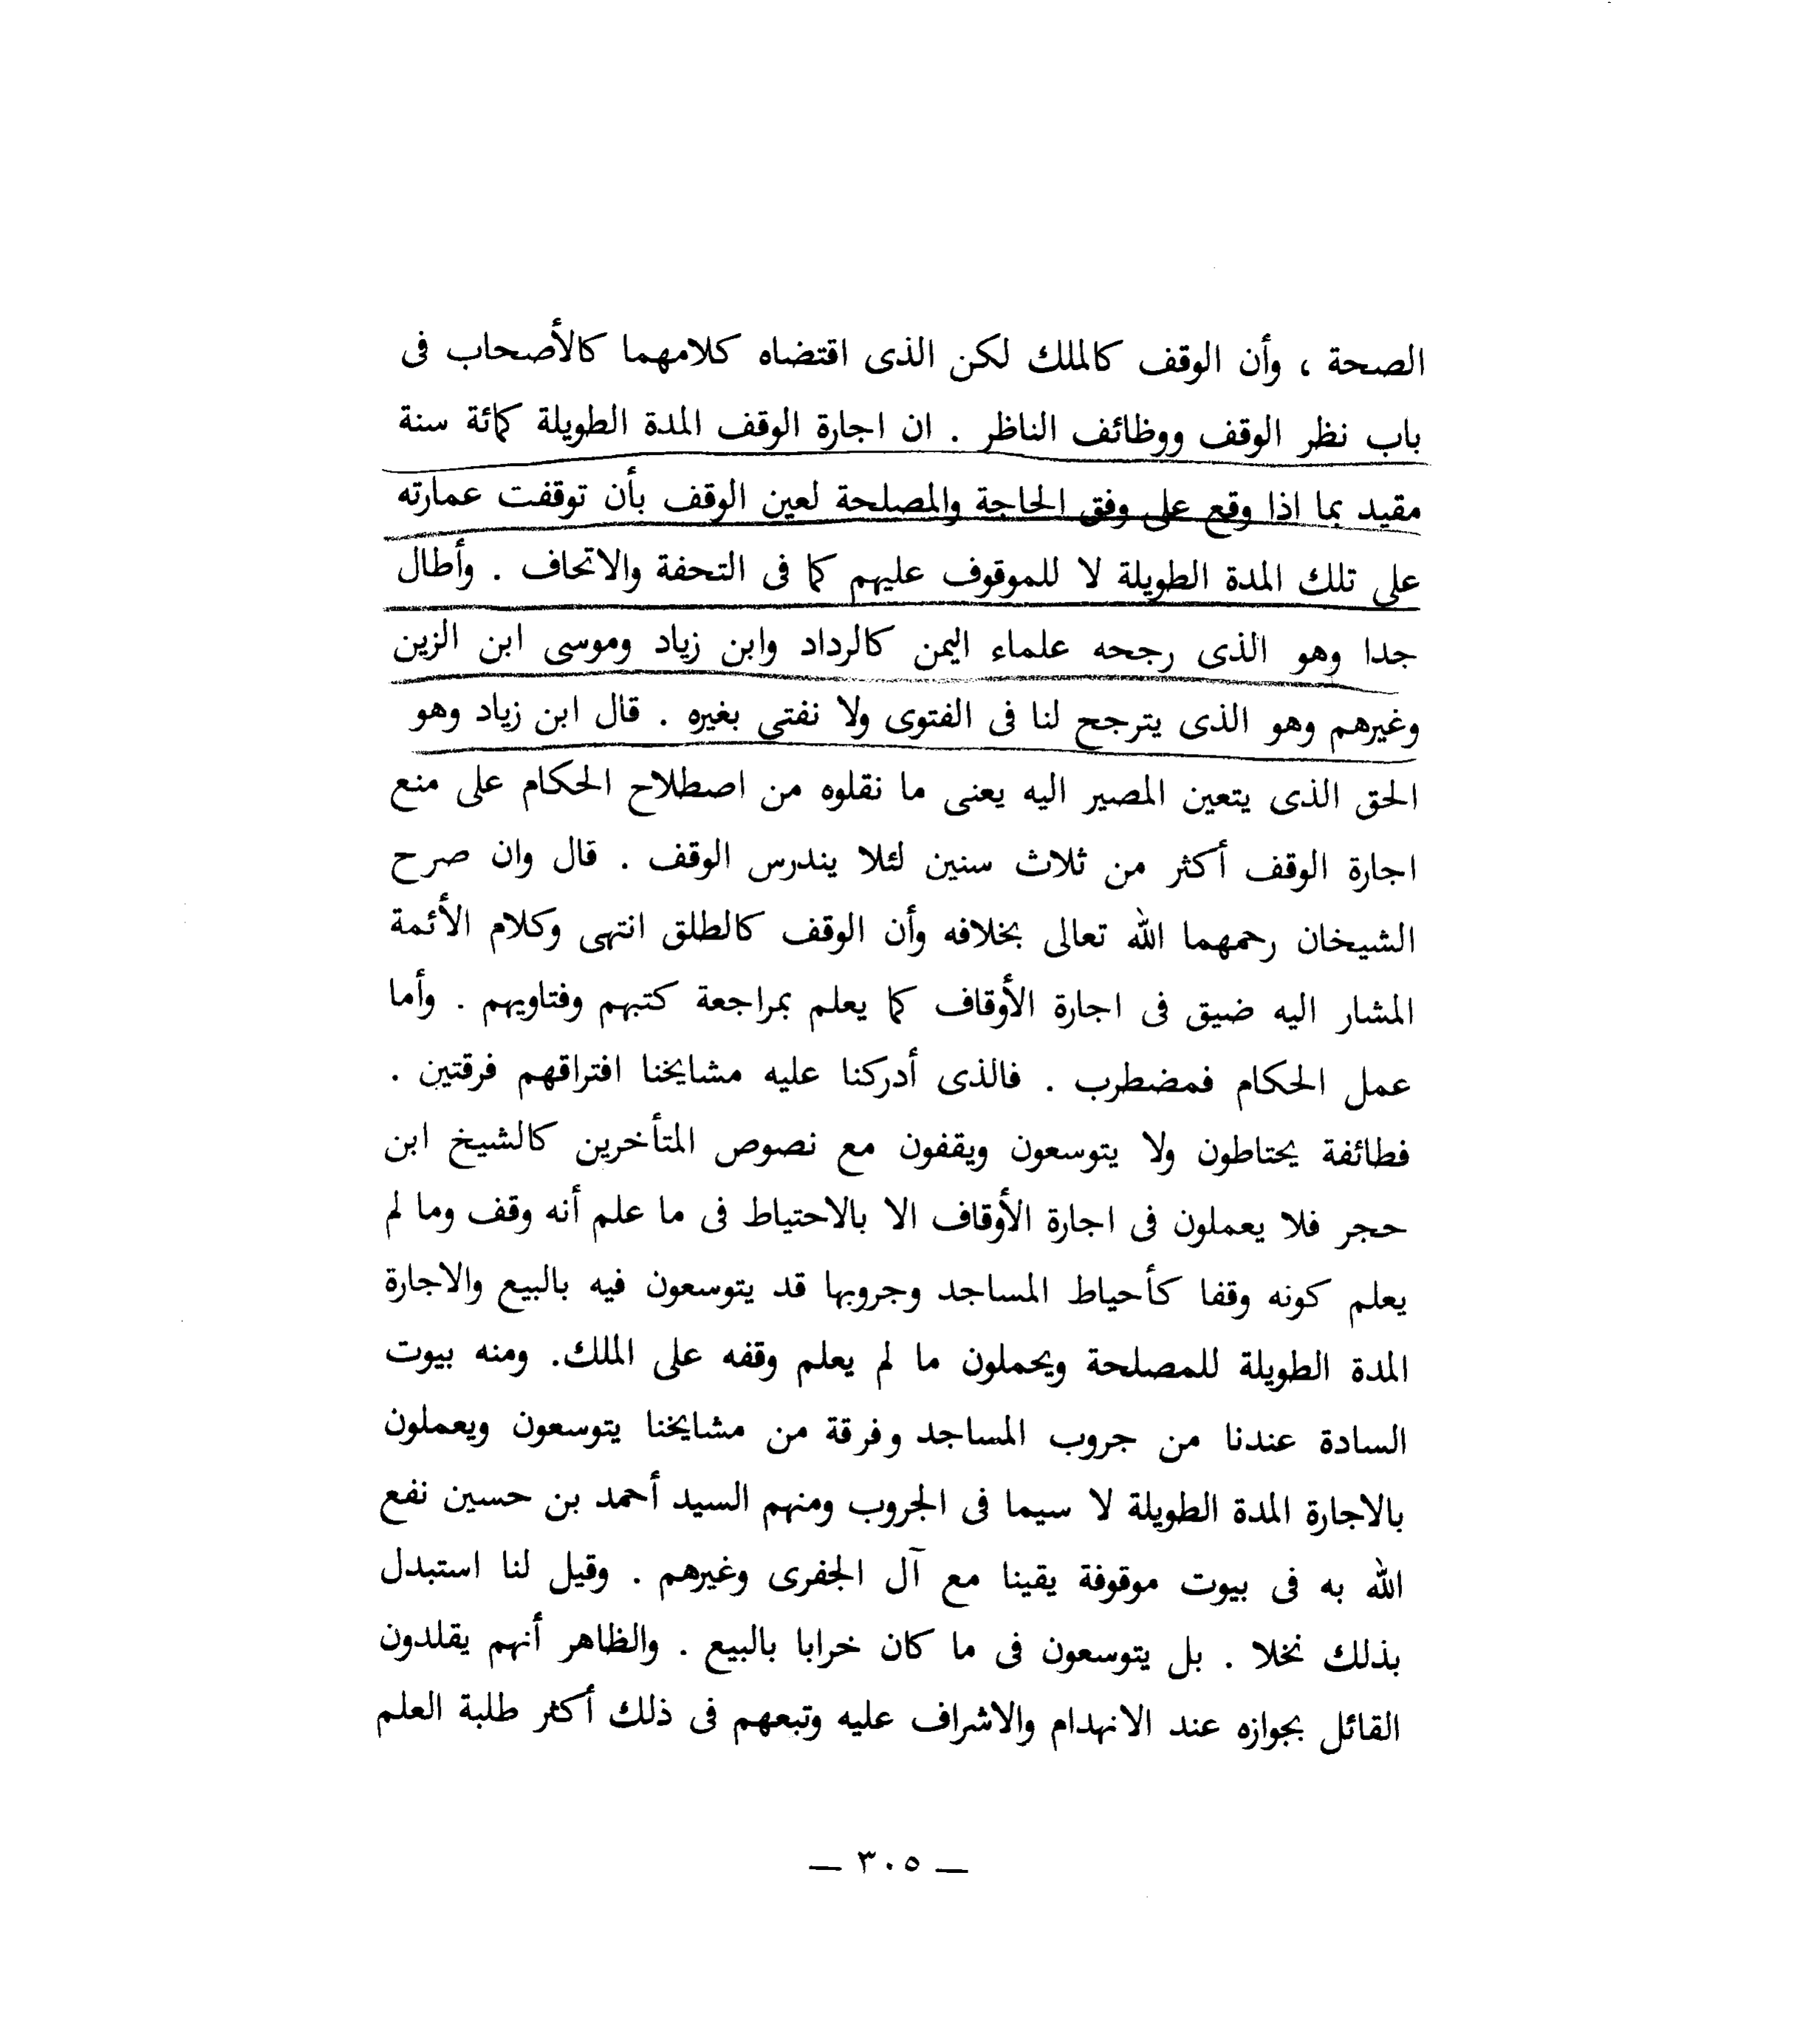 الصحة ، وأن الوقف كالملك لكن الذى اقتضاه كلامهما كالأصحاب فى
باب نظر الوقف ووظائف الناظر . ان اجارة الوقف المدة الطويلة كمائة سنة
مقيد بما اذا وقع على وفق الحاجة والمصلحة لعين الوقف بأن توقفت عمارته
على تلك المدة الطويلة لا للموقوف عليهم كما فى التحفة والاتحاف . وأطال
جدا وهو الذى رجحه علماء اليمن كالرداد وابن زياد وموسى ابن الزين
وغيرهم وهو الذى يترجح لنا فى الفتوى ولا نفتى بغيره . قال ابن زياد وهو
الحق الذى يتعين المصير اليه يعنى ما نقلوه من اصطلاح الحكام على منع
اجارة الوقف أكثر من ثلاث سنين لئلا يندرس الوقف . قال وان صرح
الشيخان رحمهما الله تعالى بخلافه وأن الوقف كالطلق انتهى وكلام الأئمة
المشار اليه ضيق فى اجارة الأوقاف كما يعلم بمراجعة كتبهم وفتاويهم . وأما
عمل الحكام فمضطرب . فالذى أدركنا عليه مشايخنا افتراقهم فرقتين .
فطائفة يحتاطون ولا يتوسعون ويقفون مع نصوص المتأخرين كالشيخ ابن
حجر فلا يعملون فى اجارة الأوقاف الا بالاحتياط فى ما علم أنه وقف وما لم
يعلم كونه وقفا كأحياط المساجد وجروبها قد يتوسعون فيه بالبيع والاجارة
المدة الطويلة للمصلحة ويحملون ما لم يعلم وقفه على الملك. ومنه بيوت
السادة عندنا من جروب المساجد وفرقة من مشايخنا يتوسعون ويعملون
بالاجارة المدة الطويلة لا سيما فى الجروب ومنهم السيد أحمد بن حسين نفع
الله به فى بيوت موقوفة يقينا مع آل الجفرى وغيرهم . وقيل لنا استبدل
بذلك نخلا . بل يتوسعون فى ما كان خرابا بالبيع . والظاهر أنهم يقلدون
القائل بجوازه عند الانهدام والاشراف عليه وتبعهم فى ذلك أكثر طلبة العلم
— ٣٠٥ —